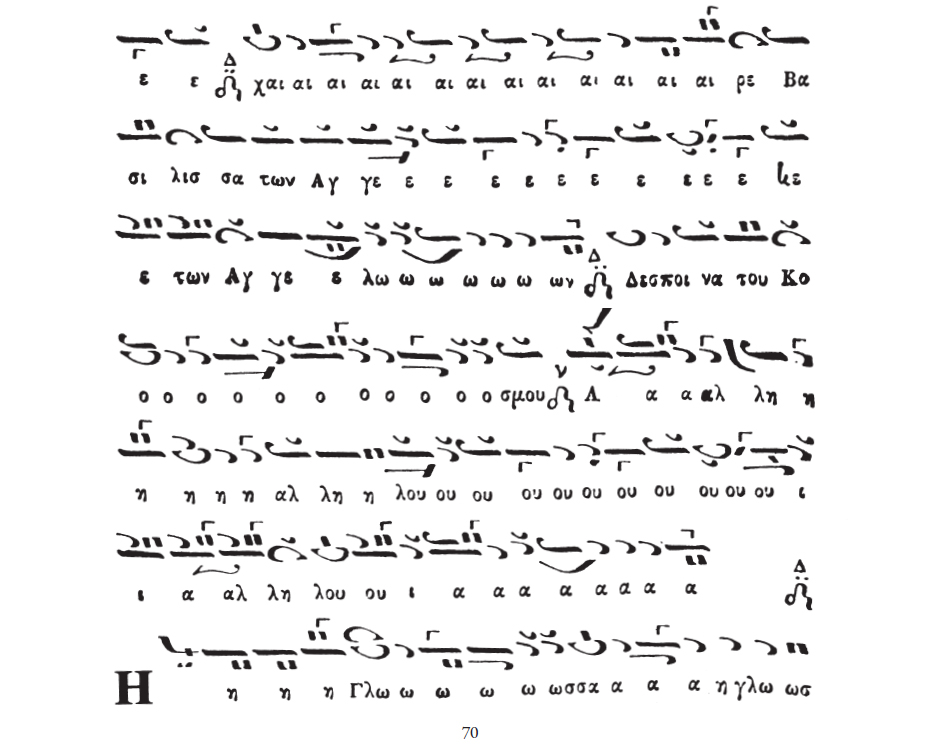 ε ε Δ χαι αι αι αι αι αι αι αι αι αι αι αι αι ρε Βα
σι λισ σα των Αγ γε ε ε ε ε ε ε ε ε ε ε κε
ε των Αγ γε ε λω ω ω ω ω ω ων Δ Δεσποι να του Κο
ο ο ο ο ο ο ο ο ο ο ο σμου ν Α α α αλ λη η
η η η η αλ λη η λου ου ου ου ου ου ου ου ου ου ου ι
ι α αλ λη λου ου ι α α α α α α α α Δ
Η η η η Γλω ω ω ω ω ωσσα α α α η γλω ωσ
70